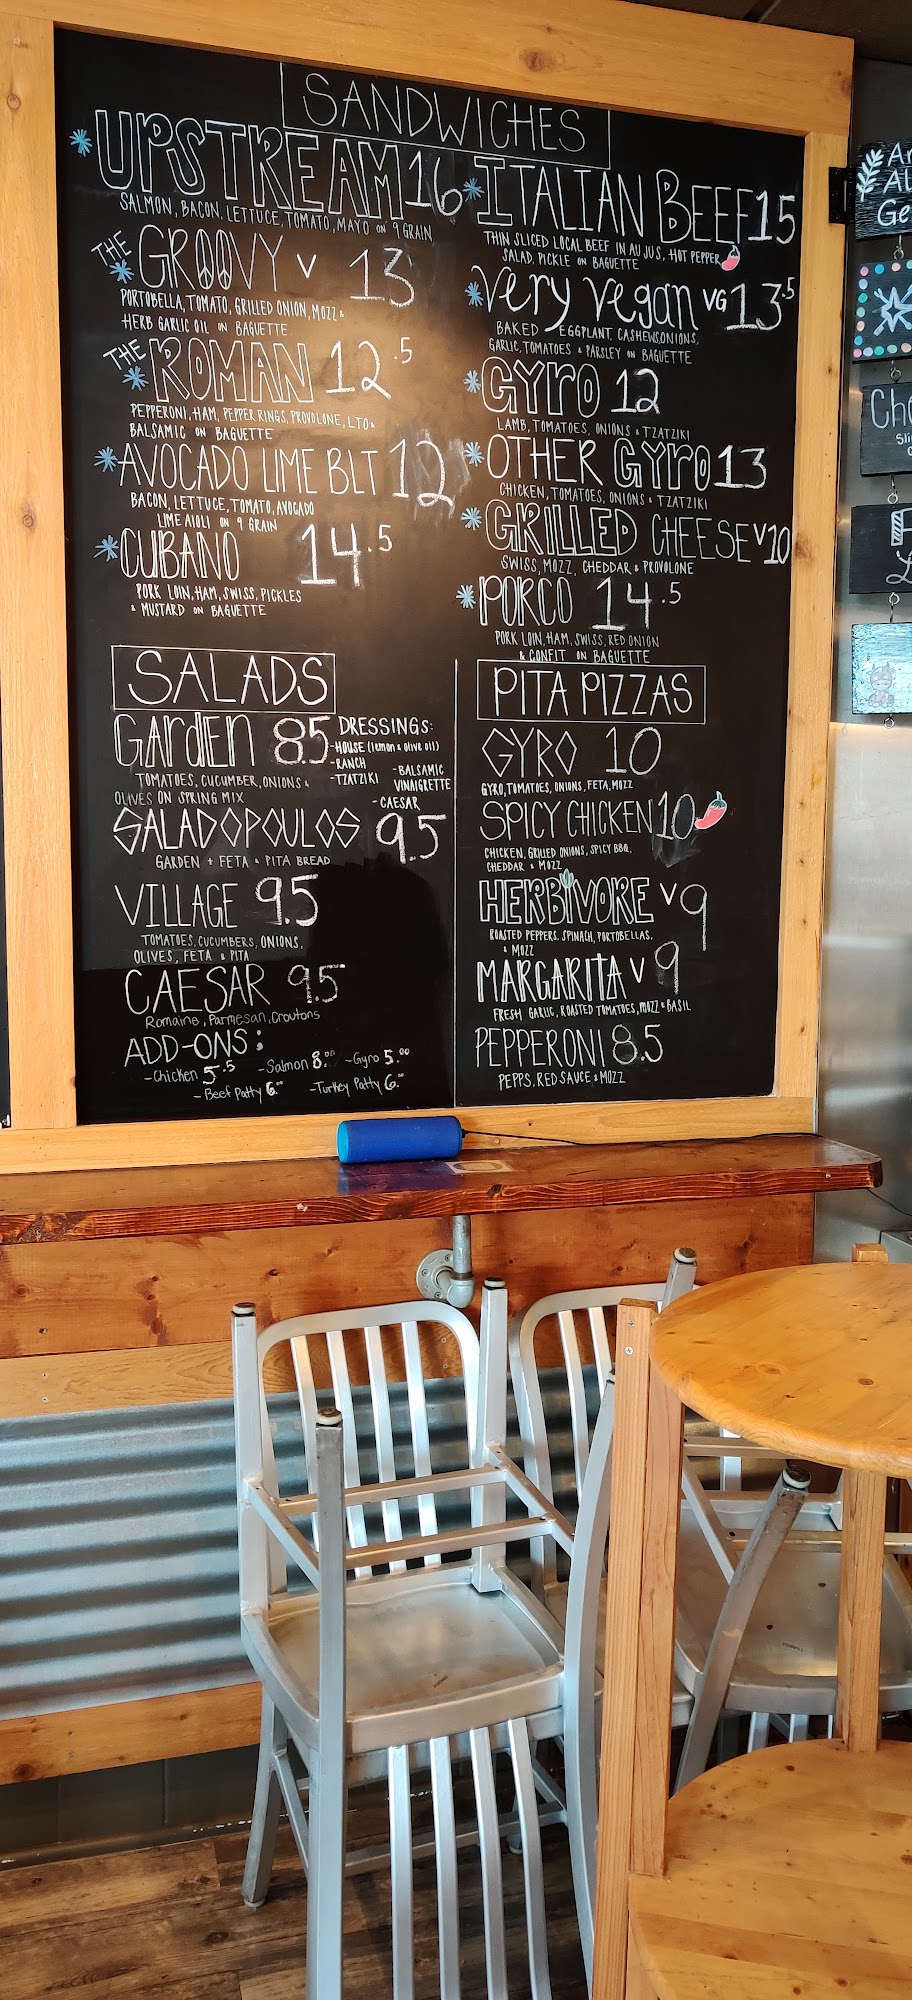 SANDWICHES
* UPSTREAM 16
SALMON, BACON, LETTUCE, TOMATO, MAYO ON 9 GRAIN
THE
* GROOVY V 13
PORTOBELLA, TOMATO, GRILLED ONION, MOZZ &
HERB GARLIC OIL ON BAGUETTE
THE
* ROMAN 12.5
PEPPERONI, HAM, PEPPER RINGS, PROVOLONE, LTO &
BALSAMIC ON BAGUETTE
* AVOCADO LIME BLT 12
BACON, LETTUCE, TOMATO, AVOCADO
LIME AIOLI ON 9 GRAIN
* CUBANO 14.5
PORK LOIN, HAM, SWISS, PICKLES
& MUSTARD ON BAGUETTE
* ITALIAN BEEF 15
THIN SLICED LOCAL BEEF IN AU JUS, HOT PEPPER
SALAD, PICKLE ON BAGUETTE
* Very Vegan VG 13.5
BAKED EGGPLANT, CASHEWS, ONIONS,
GARLIC, TOMATOES & PARSLEY ON BAGUETTE
* GYrO 12
LAMB, TOMATOES, ONIONS & TZATZIKI
* OTHER GYrO 13
CHICKEN, TOMATOES, ONIONS & TZATZIKI
* GRILLED CHEESE V 10
SWISS, MOZZ, CHEDDAR & PROVOLONE
* PORCO 14.5
PORK LOIN, HAM, SWISS, RED ONION
& CONFIT ON BAGUETTE
SALADS
GArdEN 8.5
TOMATOES, CUCUMBER, ONIONS &
OLIVES ON SPRING MIX
DRESSINGS:
-HOUSE (lemon & olive oil)
-RANCH
-TZATZIKI
-BALSAMIC
VINAIGRETTE
-CAESAR
SALADOPOULOS 9.5
GARDEN + FETA & PITA BREAD
VILLAGE 9.5
TOMATOES, CUCUMBERS, ONIONS,
OLIVES, FETA & PITA
CAESAR 9.5
Romaine, Parmesan, Croutons
ADD-ONS:
-Chicken 5.5 -Salmon 8.00 -Gyro 5.00
-Beef Patty 6.00 -Turkey Patty 6.00
PITA PIZZAS
GYRO 10
GYRO, TOMATOES, ONIONS, FETA, MOZZ
SPICY CHICKEN 10
CHICKEN, GRILLED ONIONS, SPICY BBQ,
CHEDDAR & MOZZ
HERBIVORE V 9
ROASTED PEPPERS, SPINACH, PORTOBELLAS,
& MOZZ
MARGARITA V 9
FRESH GARLIC, ROASTED TOMATOES, MOZZ & BASIL
PEPPERONI 8.5
PEPPS, RED SAUCE & MOZZ